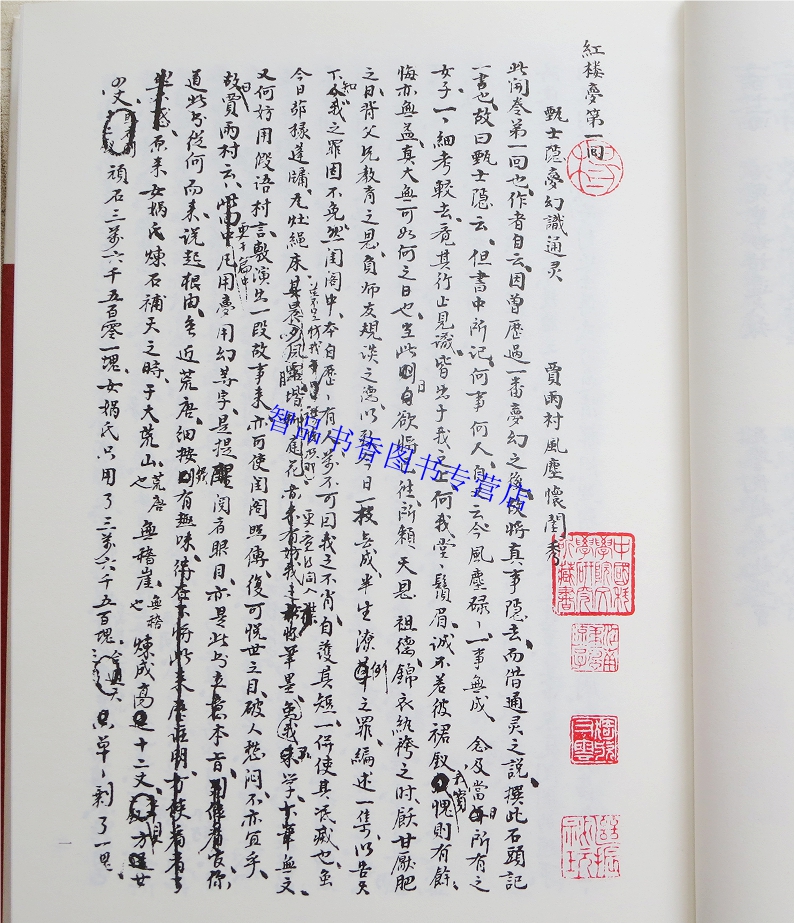 紅楼夢第一回
甄士隐夢幻識通灵　賈雨村風塵懷閨秀
此開卷第一回也、作者自云、因曾歷過一番夢幻之後、故將真事隐去、而借通灵之説、撰此石頭記
一書也、故曰甄士隐云、但書中所記何事何人、自云、今風塵碌、一事無成、念及當日所有之
女子、一、細考較去、覺其行止見識、皆出于我之上、何我堂、鬚眉、誠不若彼裙釵、我實愧則有餘、
悔亦無益、真大無可如何之日也、當此日欲將已往所賴天恩祖德、錦衣紈袴之時、飫甘厭肥
之日、背父兄教育之恩、負師友規談之德、以致今日一技無成、半生潦倒之罪、編述一集、以告天
下、知我之罪固不免、然閨阁中、本自歷、有人、萬不可因我之不肖、自護其短、一併使其泯滅也、虽
今日茆椽蓬牖、瓦灶繩床、其晨夕風露、堦柳庭花、亦未有妨我之筆墨、虽我未学、下筆無文、
又何妨用假語村言、敷演出一段故事来、亦可使閨阁照傳、復可悦世之目、破人愁悶、不亦宜乎、
故曰賈雨村云、更于篇中用夢用幻等字、是提醒閱者眼目、亦是此书立意本旨
道此书從何而来、説起根由、虽近荒唐、細按則有趣味、待在下将此来歷注明、方使看者了
然不惑、原来女媧氏煉石補天之時、于大荒山、荒唐也無稽崖、無稽也煉成高十二丈、方廿
四丈、頑石三萬六千五百零一塊、女媧氏只用了三萬六千五百塊、只单、剩了一塊、
中國科學院文學研究所藏書
智品书香图书专营店
一